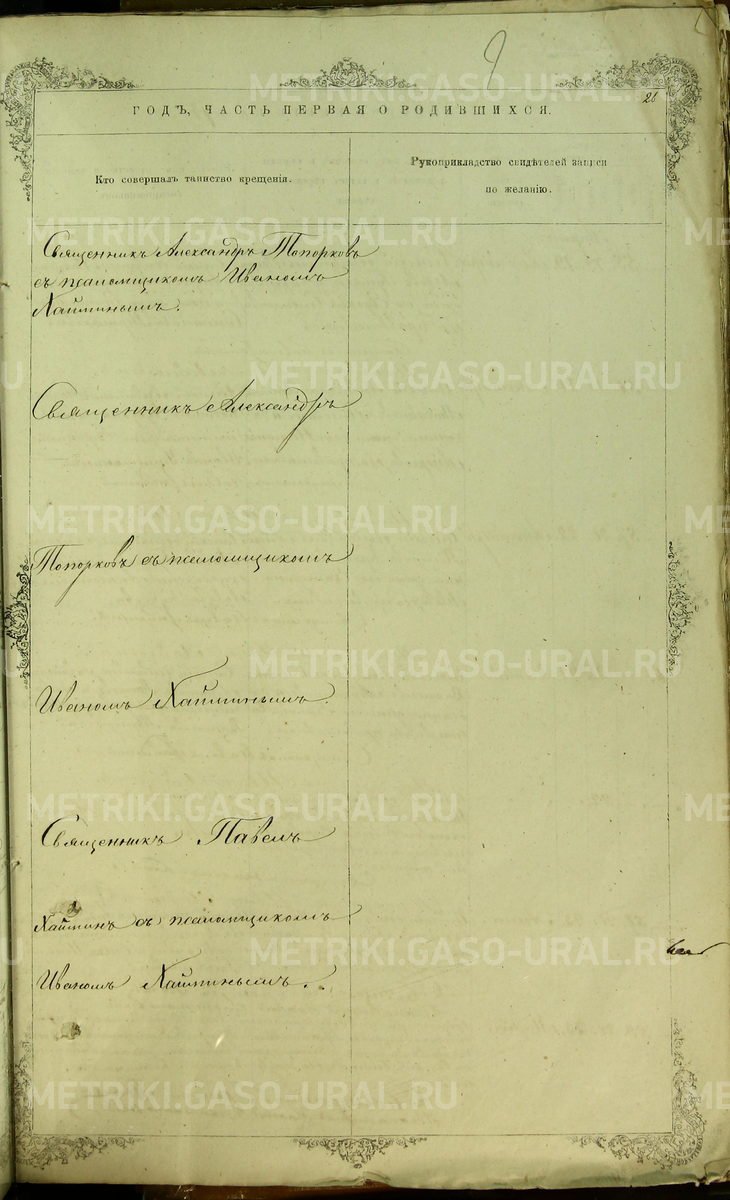 9
28
ГОДЪ, ЧАСТЬ ПЕРВАЯ О РОДИВШИХСЯ.
Кто совершалъ таинство крещенія.
Рукоприкладство свидѣтелей записи
по желанію.
Священникъ Александръ Топорковъ
съ псаломщикомъ Иваномъ
Хайминымъ.
Священникъ Александръ
Топорковъ съ псаломщикомъ
Иваномъ Хайминымъ.
Священникъ Павелъ
Хайминъ съ псаломщикомъ
Иваномъ Хайминымъ.
METRIKI.GASO-URAL.RU